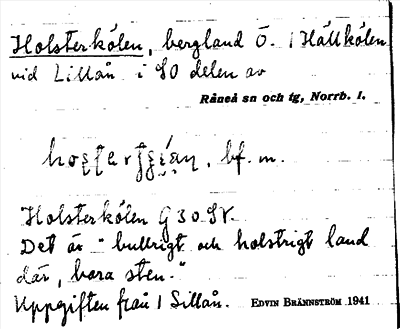 Holsterkölen, bergland Ö. i Hällkölen
vid Lillån i SO delen av
Råneå sn och tg, Norrb. l.
bf. m.
Holsterkölen G 30 SV.
Det är "bullrigt och holstrigt land
där, bara sten."
Uppgiften från
EDVIN BRÄNNSTRÖM 1941